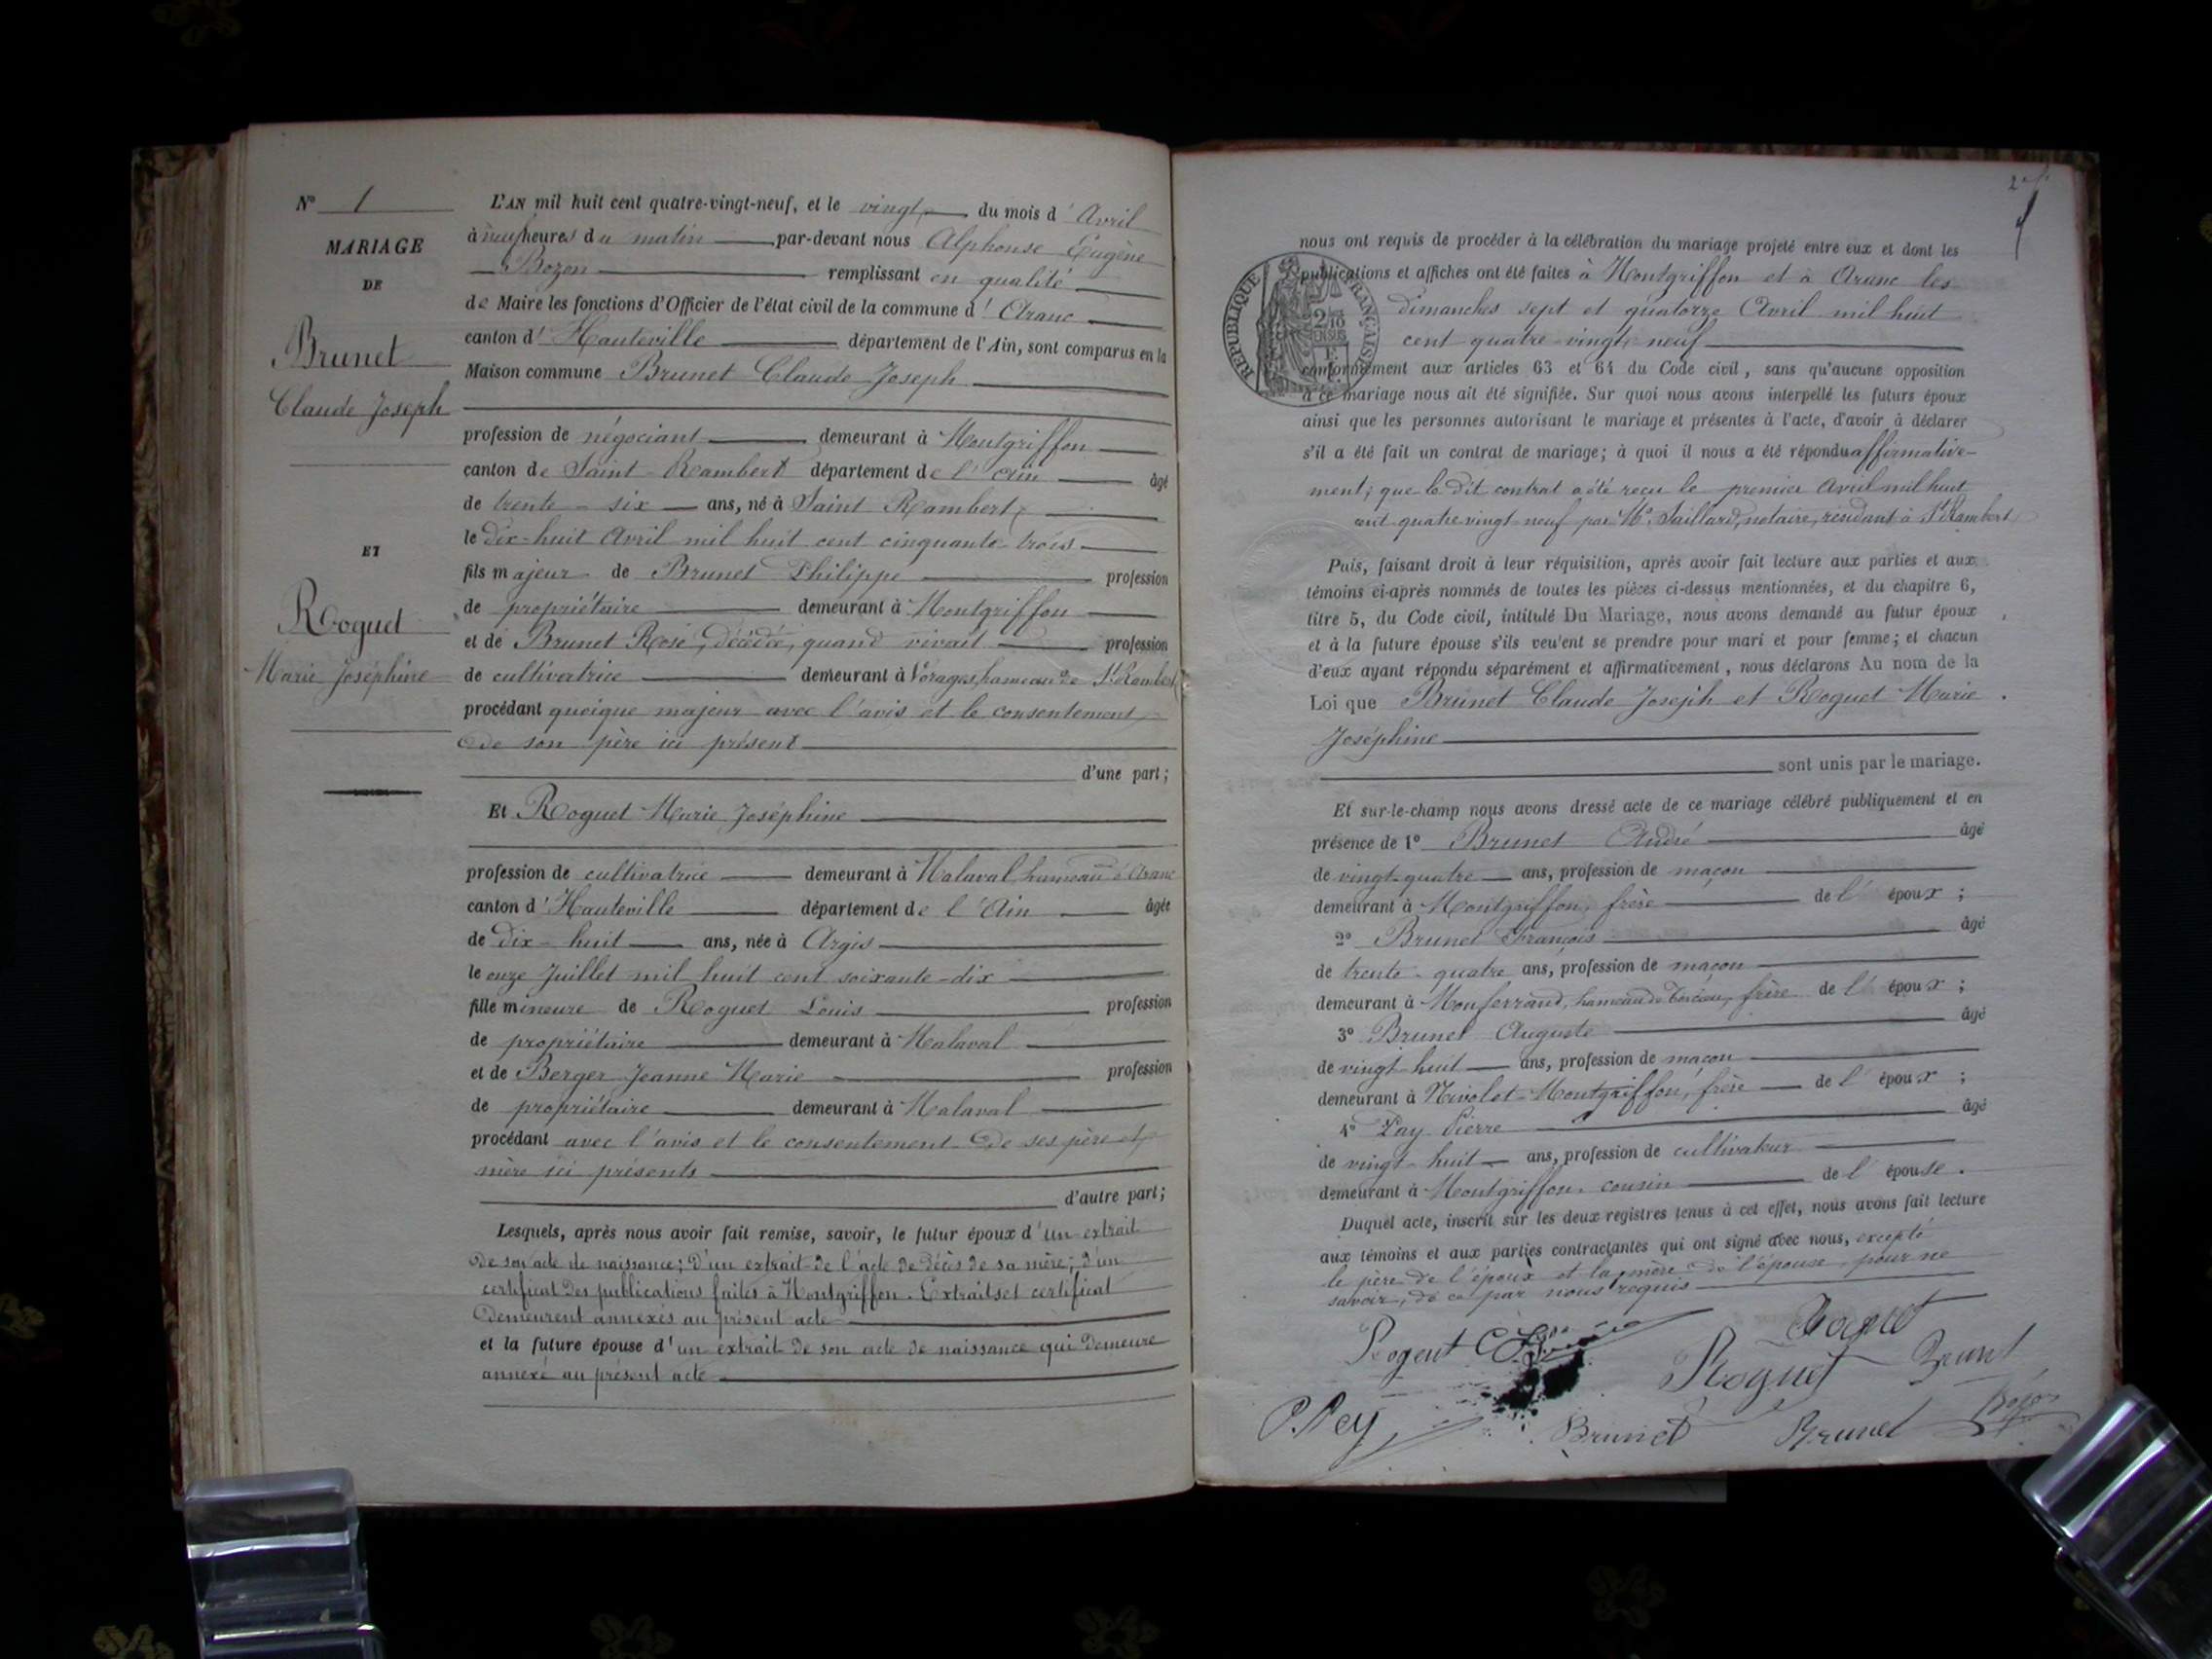 N° 1
MARIAGE
DE
Brunet
Claude Joseph
ET
Roguet
Marie Joséphine
L'AN mil huit cent quatre-vingt-neuf, et le vingt du mois d'Avril
à neuf heures du matin par-devant nous Alphonse Eugène
Bozon remplissant en qualité
de Maire les fonctions d'Officier de l'état civil de la commune d'Aranc
canton d'Hauteville département de l'Ain, sont comparus en la
Maison commune Brunet Claude Joseph
profession de négociant demeurant à Montgriffon
canton de Saint-Rambert département de l'Ain âgé
de trente-six ans, né à Saint Rambert,
le dix-huit Avril mil huit cent cinquante-trois
fils majeur de Brunet Philippe profession
de propriétaire demeurant à Montgriffon
et de Brunet Rose, décédée, quand vivait profession
de cultivatrice demeurant à Vorages, hameau de St Rambert
procédant quoique majeur avec l'avis et le consentement
de son père ici présent
d'une part;
Et Roguet Marie Joséphine
profession de cultivatrice demeurant à Malaval, hameau d'Aranc
canton d'Hauteville département de l'Ain âgée
de dix-huit ans, née à Argis
le onze Juillet mil huit cent soixante-dix
fille mineure de Roguet Louis profession
de propriétaire demeurant à Malaval
et de Berger Jeanne Marie profession
de propriétaire demeurant à Malaval
procédant avec l'avis et le consentement de ses père et
mère ici présents
d'autre part;
Lesquels, après nous avoir fait remise, savoir, le futur époux d'un extrait
de son acte de naissance; d'un extrait de l'acte de décès de sa mère; d'un
certificat des publications faites à Montgriffon. Extraits et certificat
demeurent annexés au présent acte
et la future épouse d'un extrait de son acte de naissance qui demeure
annexé au présent acte
nous ont requis de procéder à la célébration du mariage projeté entre eux et dont les
publications et affiches ont été faites à Montgriffon et à Aranc les
dimanches sept et quatorze Avril mil huit
cent quatre-vingt-neuf
REPUBLIQUE FRANÇAISE
conformément aux articles 63 et 64 du Code civil, sans qu'aucune opposition
à ce mariage nous ait été signifiée. Sur quoi nous avons interpellé les futurs époux
ainsi que les personnes autorisant le mariage et présentes à l'acte, d'avoir à déclarer
s'il a été fait un contrat de mariage; à quoi il nous a été répondu affirmative-
ment; que le dit contrat a été reçu le premier Avril mil huit
cent quatre vingt-neuf par Me Saillard, notaire, résidant à St Rambert
Puis, faisant droit à leur réquisition, après avoir fait lecture aux parties et aux
témoins ci-après nommés de toutes les pièces ci-dessus mentionnées, et du chapitre 6,
titre 5, du Code civil, intitulé Du Mariage, nous avons demandé au futur époux
et à la future épouse s'ils veulent se prendre pour mari et pour femme; et chacun
d'eux ayant répondu séparément et affirmativement, nous déclarons Au nom de la
Loi que Brunet Claude Joseph et Roguet Marie
Joséphine
sont unis par le mariage.
Et sur-le-champ nous avons dressé acte de ce mariage célébré publiquement et en
présence de 1° Brunet André âgé
de vingt-quatre ans, profession de maçon
demeurant à Montgriffon, frère de l'époux;
2° Brunet François âgé
de trente-quatre ans, profession de maçon
demeurant à Monferrand, hameau de Torcieu, frère de l'époux;
3° Brunet Auguste âgé
de vingt-huit ans, profession de maçon
demeurant à Nivolet-Montgriffon, frère de l'époux;
4° Pay Pierre âgé
de vingt-huit ans, profession de cultivateur
demeurant à Montgriffon, cousin de l'épouse.
Duquel acte, inscrit sur les deux registres tenus à cet effet, nous avons fait lecture
aux témoins et aux parties contractantes qui ont signé avec nous, excepté
le père de l'époux et la mère de l'épouse, pour ne
savoir, de ce par nous requis
Roguet
Roguet
Brunet
P. Pey
Brunet
Brunet
Bozon